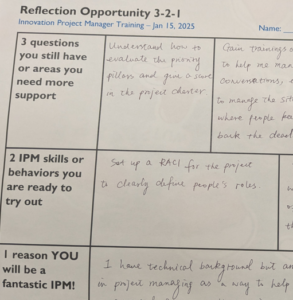 Reflection Opportunity 3-2-1
Innovation Project Manager Training – Jan 15, 2025
Name:
3 questions
you still have
or areas you
need more
support
Understand how to
evaluate the
pillars and give a score
in the project charter
Gain trainings
to help me man
conversations,
to manage the sit
where people
back the dead
2 IPM skills or
behaviors you
are ready to
try out
Set up a RACI for the project
to clearly define people's roles
1 reason YOU
will be a
fantastic IPM!
I have technical background but an
in project managing as a way to help